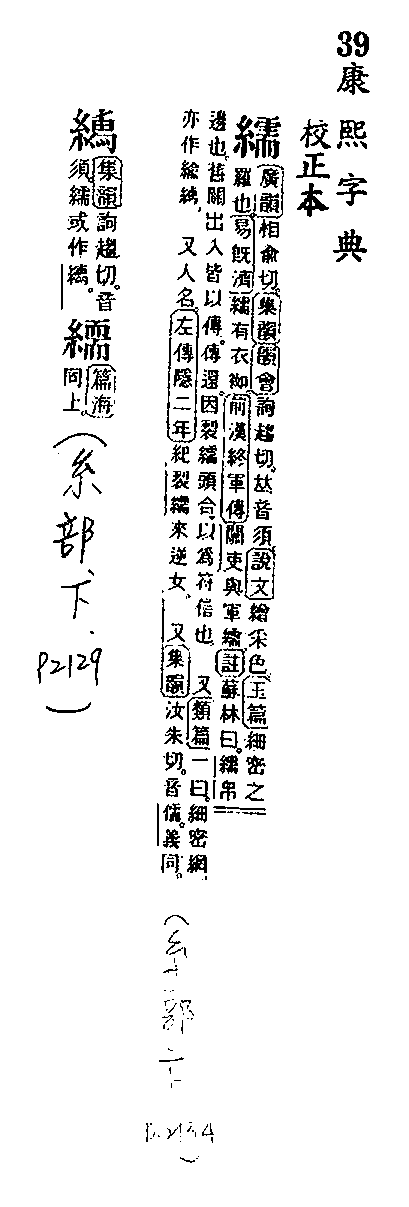 39康熙字典
校正本
繻
廣韻相俞切。集韻韻會詢趨切。𠀤音須。說文繒采色。玉篇細密之
羅也。易旣濟繻有衣袽。前漢終軍傳關吏與軍繻。註蘇林曰。繻帛
邊也。舊關出入皆以傳。傳還因裂繻頭合以爲符信也 又類篇一曰。細密網
亦作 又人名。左傳隱二年紀裂繻來逆女。又集韻汝朱切。音儒。義同。
(糸部下
P2134)
集韻詢趨切。音
須。繻或作
篇海
同上。
(糸部、下、
P2129)